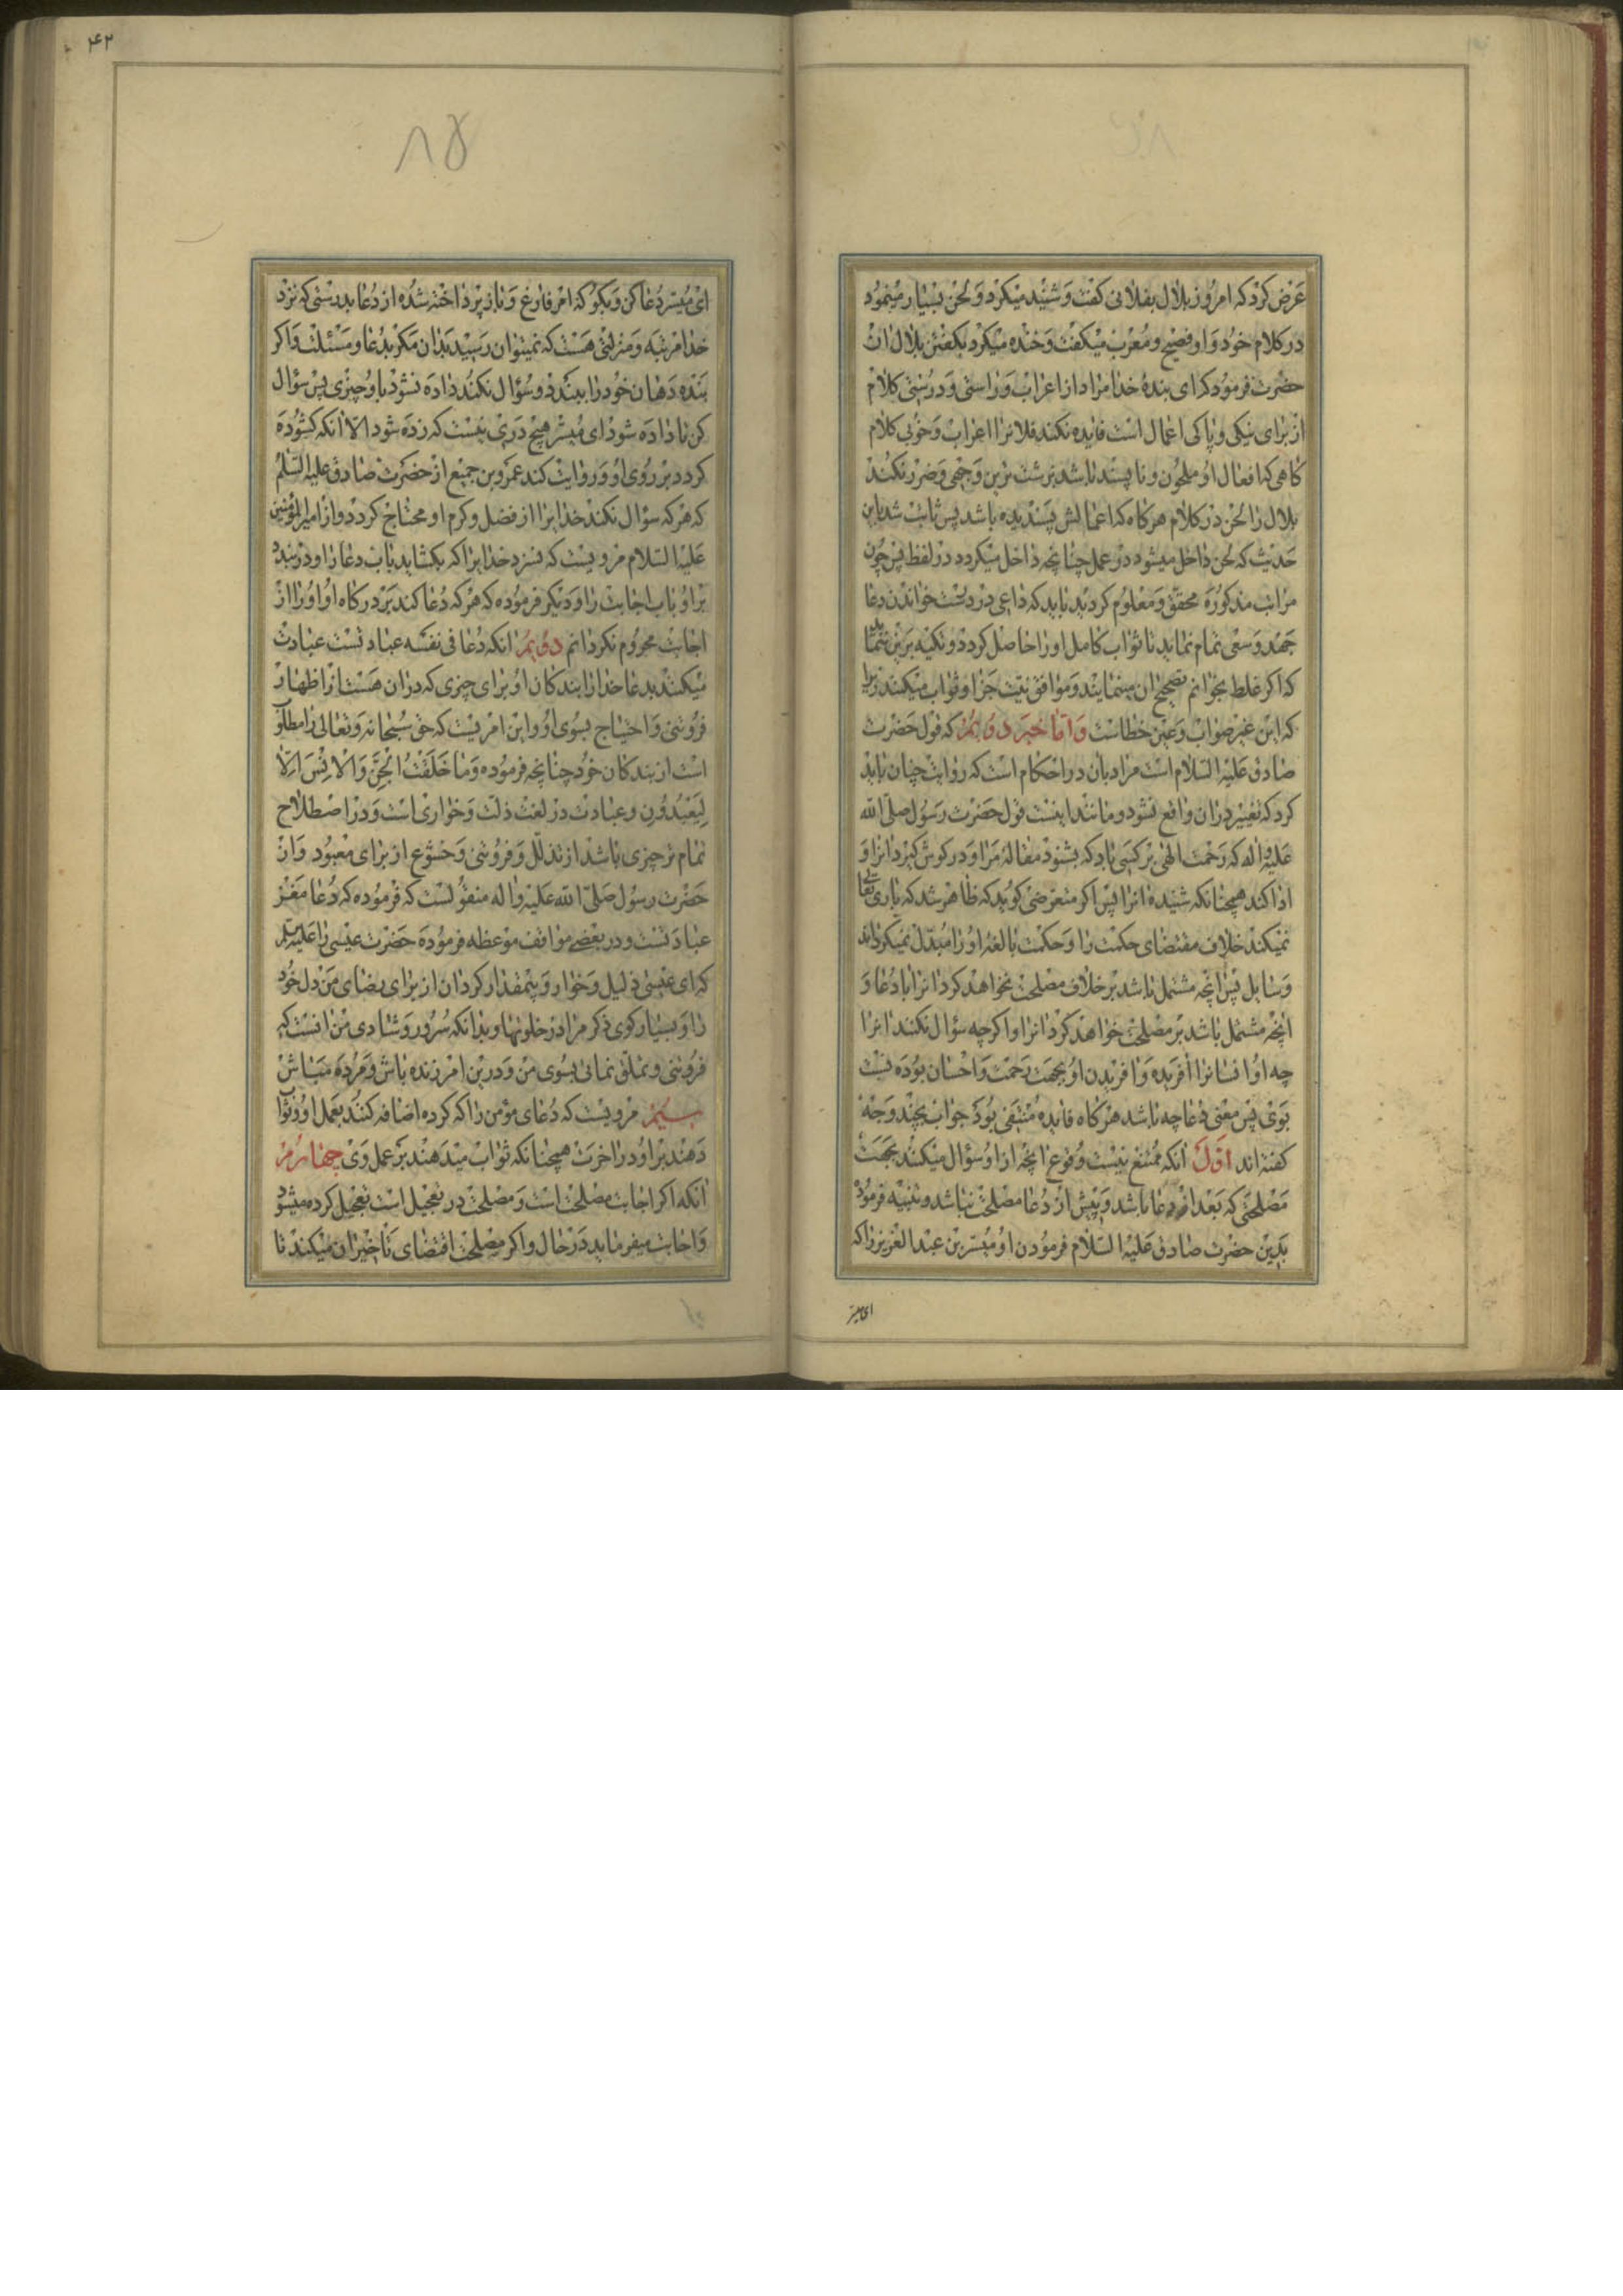 عرض کرد که امروز بلال بفلانی کفت و شنید میکرد و لحن بسیار مینمود
در کلام خود و او فصیح و معرب میکفت و خنده میکرد بکفتن بلال ان
حضرت فرمود که ای بنده خدا مراد از اعراب و راستی و درستی کلام
از برای نیکی و پاکی اعمال است فایده نکند فلانرا اعراب و خوبی کلام
کاهی که افعال او ملحون و ناپسند باشد بزشت ترین وجهی و ضرر نکند
بلال را لحن در کلام هرکاه که اعمالش پسندیده باشد پس ثابت شد باین
حدیث که لحن داخل میشود در عمل چنانچه داخل میکردد در لفظ پس چون
مراتب مذکوره محقق و معلوم کردید باید که داعی در درست خواندن دعا
جهد و سعی تمام نماید تا ثواب کامل او را حاصل کردد و تکیه برین ننماید
که اکر غلط بخوانم تصحیح ان مینمایند و موافق نیت جزا و ثواب میکنند زیرا
که این غیر صواب و عین خطاست و اما خبر دویم که قول حضرت
صادق علیه السلام است مراد بان در احکام است که روایت چنان باید
کرد که تغییر دران واقع نشود و مانند اینست قول حضرت رسول صلی الله
علیه و اله که رحمت الهی بر کسی باد که بشنود مقاله مرا و در کوش کیرد انرا و
ادا کند همچنانکه شنیده انرا پس اکر متعرضی کوید که ظاهر شد که باری تعالی
نمیکند خلاف مقتضای حکمت را و حکمت بالغه او را مبدل نمیکرداند
وسایل پس انچه مشتمل باشد بر خلاف مصلحت نخواهد کرد انرا با دعا و
انچه مشتمل باشد بر مصلحت خواهد کرد انرا و اکرچه سؤال نکنند انرا
چه او انسانرا افریده و افریدن او بجهت رحمت و احسان بوده نسبت
بوی پس معنی دعا چه باشد هرکاه فایده منتفی بود جواب بچند وجه
کفته اند اول انکه ممتنع نیست وقوع انچه از او سؤال میکنند بجهت
مصلحتی که بعد از دعا باشد و پیش از دعا مصلحت نباشد و تنبیه فرموده
بدین حضرت صادق علیه السلام فرمودن او میسر بن عبد العزیز را که
ای میسر
۴۲
۸۵
ای میسر دعا کن و بکو که امر فارغ و باز پرداخته شده از دعا بدرستی که نزد
خدا مرتبه و منزلتی هست که نمیتوان رسید بدان مکر بدعا و مسئلت و اکر
بنده دهان خود را ببندد و سؤال نکند داده نشود باو چیزی پس سؤال
کن تا داده شود ای میسر هیچ دری نیست که زده شود الا انکه کشوده
کردد بر روی او و روایت کند عمرو بن جمیع از حضرت صادق علیه السلم
که هر که سؤال نکند خدایرا از فضل و کرم او محتاج کردد و از امیرالمؤمنین
علیه السلام مرویست که نسزد خدایرا که بکشاید باب دعا را و در بندد
بر او باب اجابت را و دیکر فرموده که هر که دعا کند بر درکاه او او را از
اجابت محروم نکردانم دویم انکه دعا فی نفسه عبادتست عبادت
میکنند بدعا خدا را بندکان او برای چیزی که دران هست از اظهار
فروتنی و احتیاج بسوی او و این امریست که حق سبحانه و تعالی را مطلوب
است از بندکان خود چنانچه فرموده وما خلقت الجن والانس الا
لیعبدون و عبادت در لغت ذلت و خواری است و در اصطلاح
تمام تر چیزی باشد از تذلل و فروتنی و خشوع از برای معبود و از
حضرت رسول صلی الله علیه و اله منقولست که فرموده که دعا مغز
عبادتست و در بعضی مواقف موعظه فرموده حضرت عیسی را علیه السلم
که ای عیسی ذلیل و خوار و بیمقدار کردان از برای رضای من دل خود
را و بسیار کوی ذکر مرا در خلوتها و بدانکه سرور و شادی من انست که
فروتنی و تملق نمائی بسوی من و درین امر زنده باش و مرده مباش
سیم مرویست که دعای مؤمن را که کرده اضافه کنند بعمل او و ثواب
دهند بر او در اخرت همچنانکه ثواب میدهند بر عمل وی چهارم
انکه اکر اجابت مصلحت است و مصلحت در تعجیل است تعجیل کرده میشود
و اجابت میفرماید در حال و اکر مصلحت اقتضای تأخیر ان میکند تا